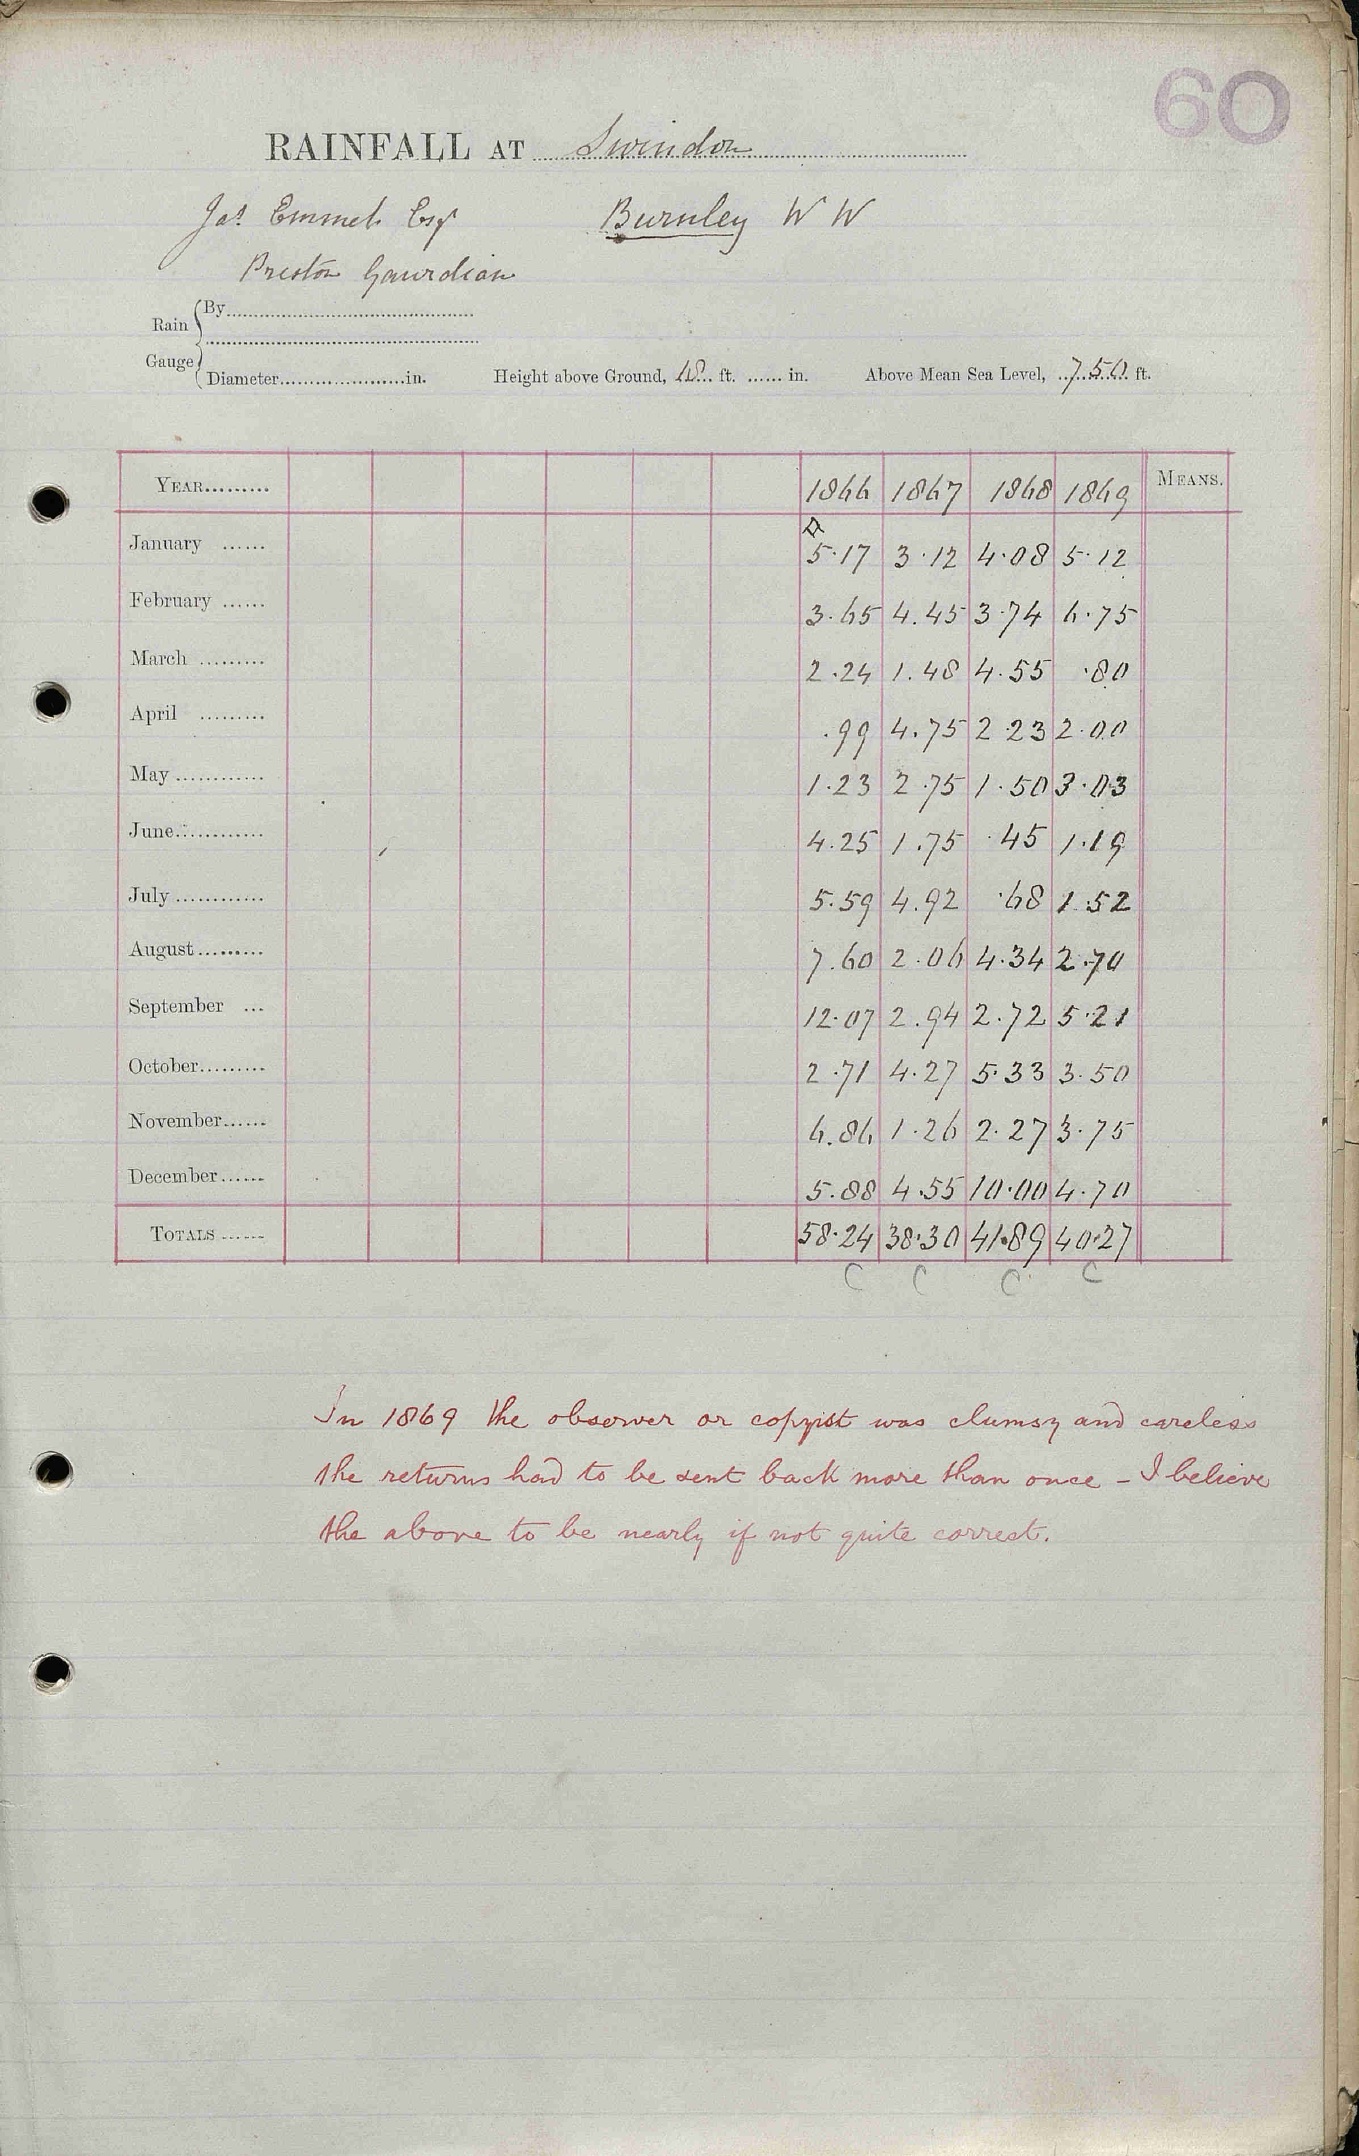 60
RAINFALL AT Swindon
Jas. Emmet Esqr Burnley W W
Preston Gaurdian
Rain Gauge
By
Diameter in. Height above Ground, ft. in. Above Mean Sea Level, 750 ft.
YEAR 1866 1867 1868 1869 MEANS.
January 5.17 3.12 4.08 5.12
February 3.65 4.45 3.74 6.75
March 2.24 1.48 4.55 .80
April .99 4.75 2.23 2.00
May 1.23 2.75 1.50 3.03
June 4.25 1.75 .45 1.19
July 5.59 4.92 .68 1.52
August 7.60 2.06 4.34 2.70
September 12.07 2.94 2.72 5.21
October 2.71 4.27 5.33 3.50
November 6.86 1.26 2.27 3.75
December 5.88 4.55 10.00 4.70
TOTALS 58.24 38.30 41.89 40.27
C C C C
In 1869 the observer or copyist was clumsy and careless
the returns had to be sent back more than once – I believe
the above to be nearly if not quite correct.